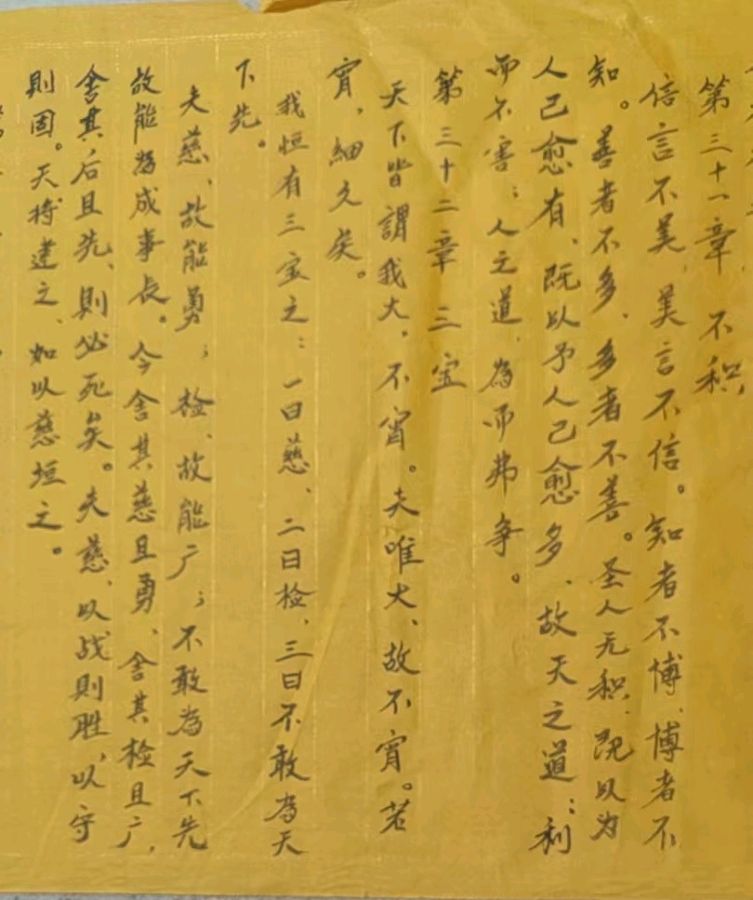 第三十一章 不积
信言不美、美言不信。知者不博、博者不
知。善者不多、多者不善。圣人无积、既以为
人己愈有、既以予人己愈多、故天之道：利
而不害；人之道、為而弗争。
第三十二章 三宝
天下皆謂我大、不宵。夫唯大、故不宵。若
宵、細久矣。
我恒有三宝之：一曰慈、二曰检、三曰不敢為天
下先。
夫慈、故能勇；检、故能广；不敢為天下先
故能為成事长。今舍其慈且勇、舍其检且广、
舍其后且先、則必死矣。夫慈、以战則胜、以守
則固。天将建之、如以慈垣之。